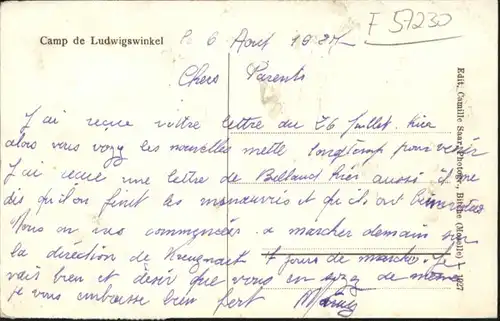 Camp de Ludwigswinkel
le 6 Aout 1927
F 57230
Chers Parents
J'ai reçue vôtre lettre du 26 Juillet. hier
alors vous voyz les nouvelles mette longtemp pour venir
J'ai reçue une lettre de Billaud hier aussi il me
dis qu'il on finit les manœuvres et qu'il ont
Nous on vas commencées a marcher demain sur
la direction de Kreuznach 7 jours de marche. Je
vais bien et désir que vous en soyz de même
je vous embrasse bien fort
Edit. Camille Saar, Photogr., Bitche (Moselle) 1927